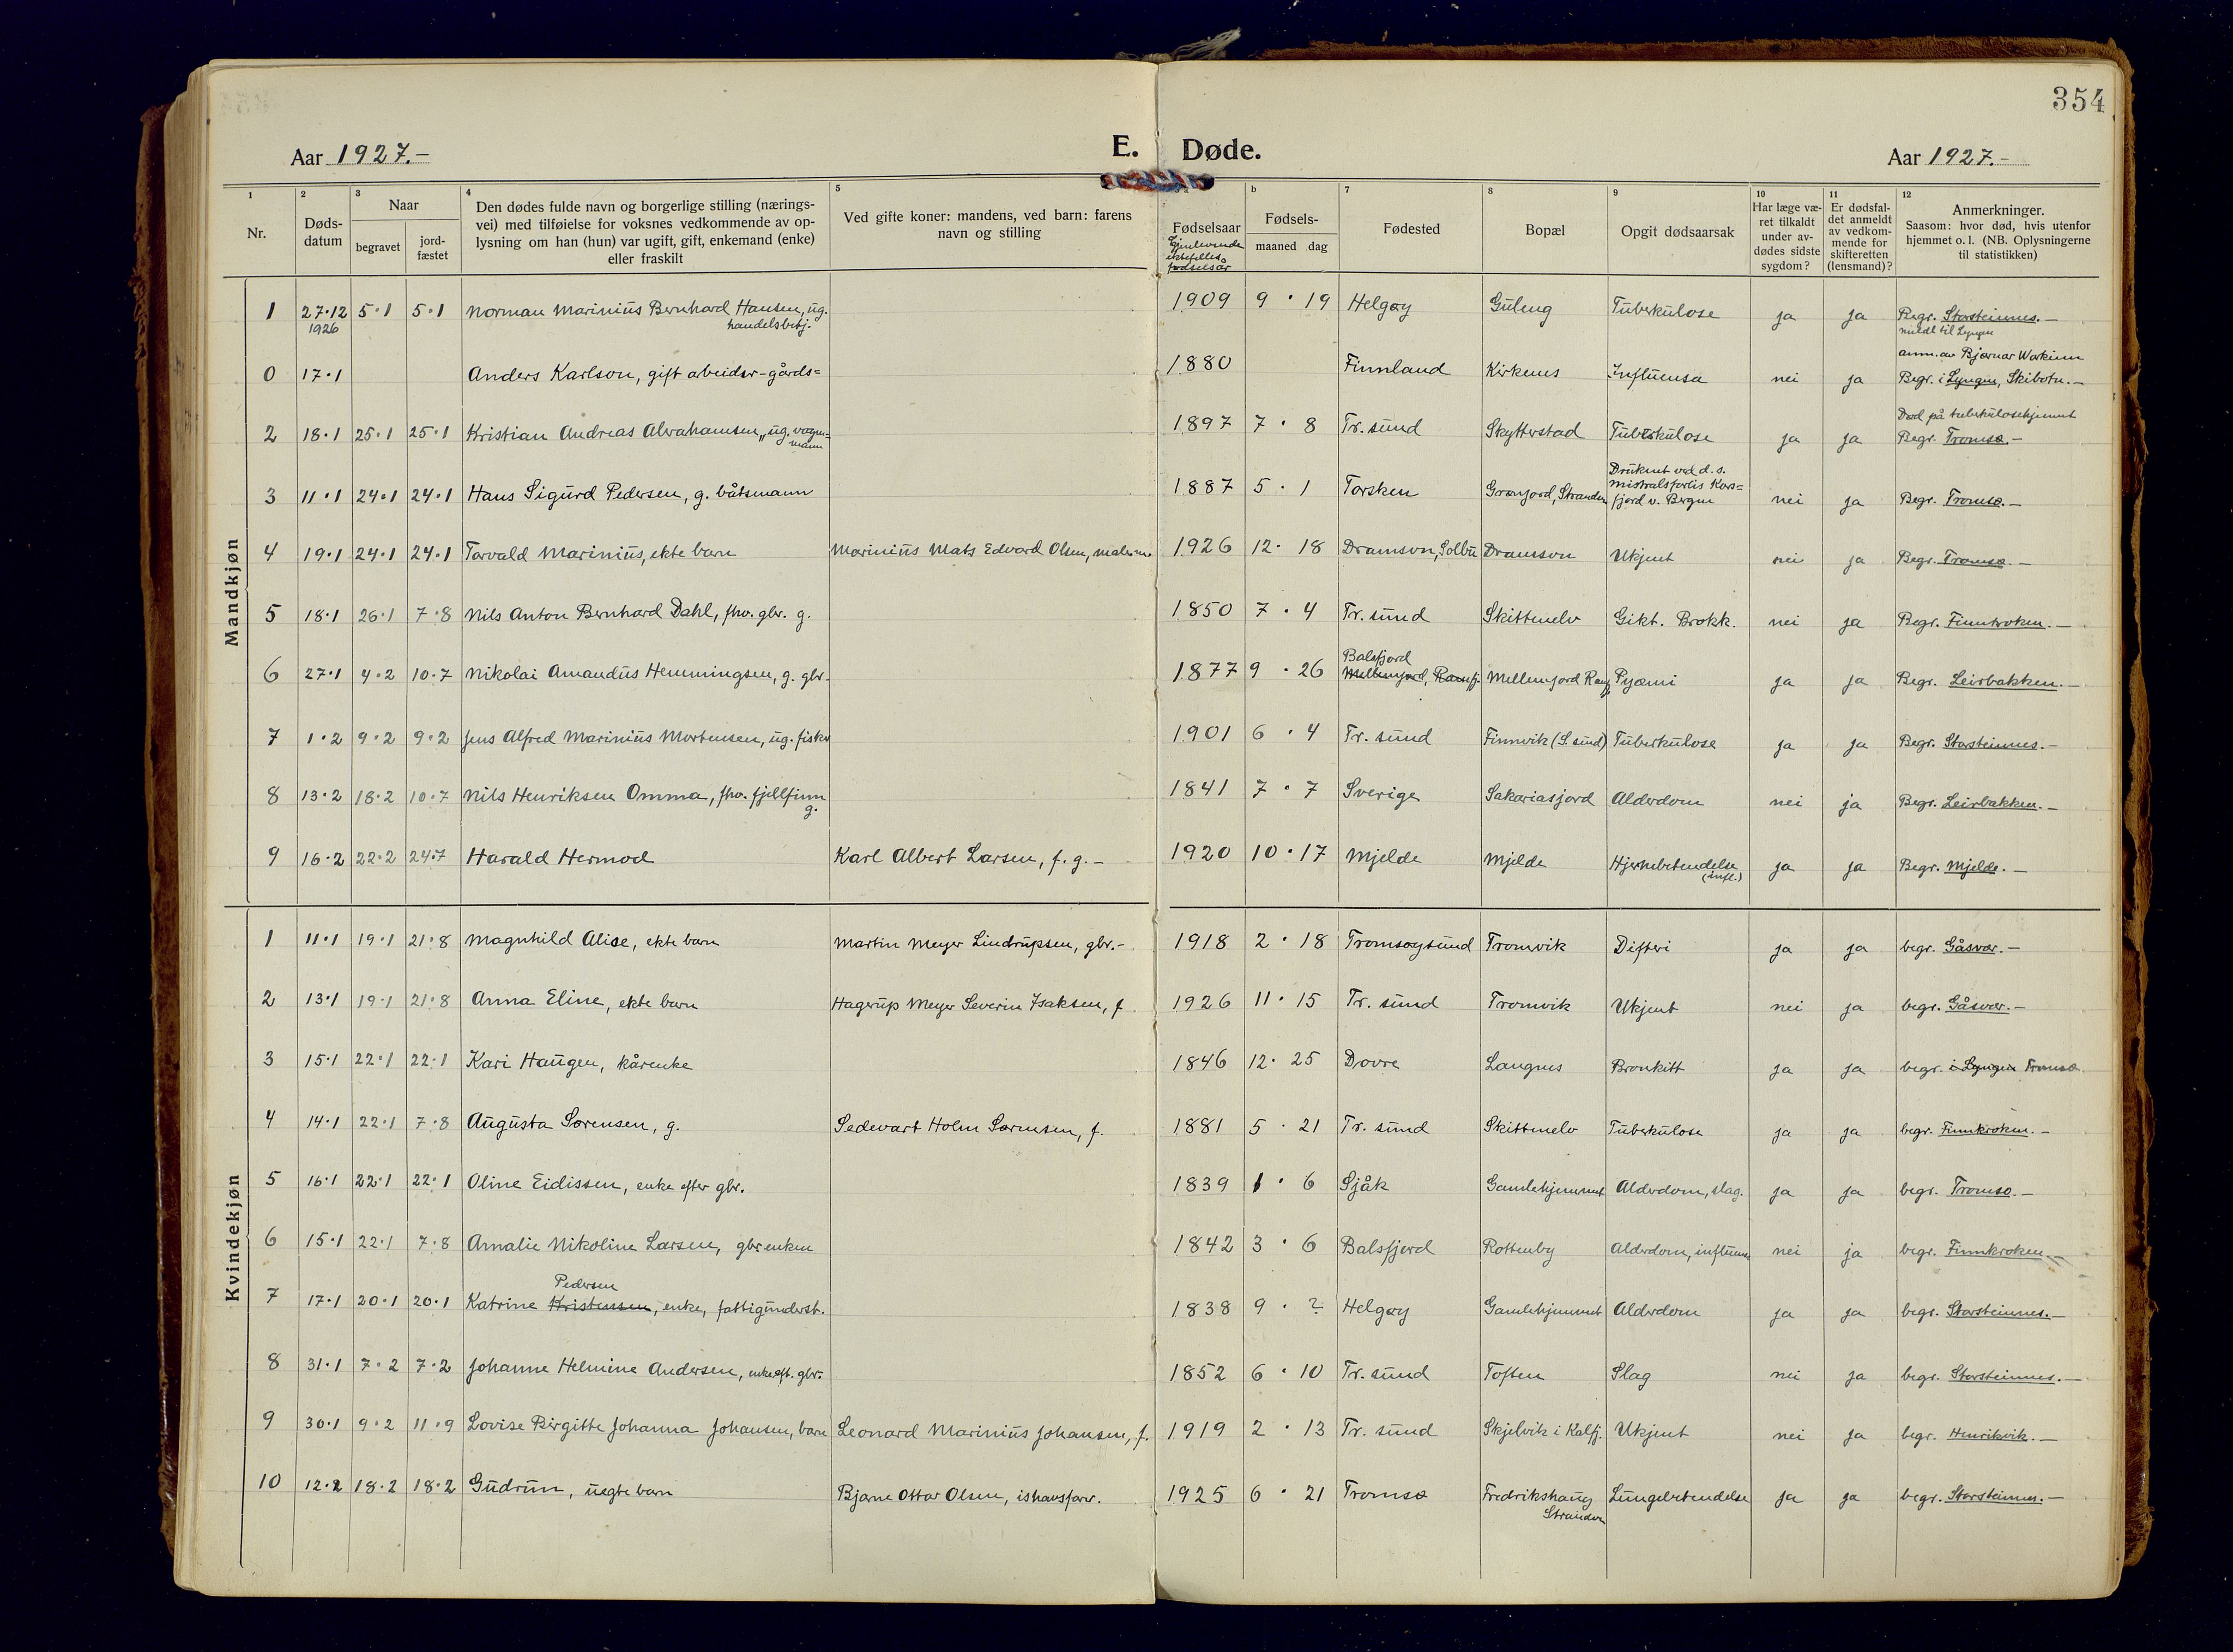 354
Aar 1927.-
E. Døde.
Aar 1927.-
1 Nr.
2 Døds-datum
3 Naar
begravet
jord-fæstet
4 Den dødes fulde navn og borgerlige stilling (nærings-
vei) med tilføielse for voksnes vedkommende av op-
lysning om han (hun) var ugift, gift, enkemand (enke)
eller fraskilt
5 Ved gifte koner: mandens, ved barn: farens
navn og stilling
Fødselsaar
Gjenlevende ektefelles fødselsår
b Fødsels-
maaned dag
7 Fødested
8 Bopæl
9 Opgit dødsaarsak
10 Har læge væ-
ret tilkaldt
under av-
dødes sidste
sygdom?
11 Er dødsfal-
det anmeldt
av vedkom-
mende for
skifteretten
(lensmand)?
12 Anmerkninger.
Saasom: hvor død, hvis utenfor
hjemmet o. l. (NB. Oplysningerne
til statistikken)
Mandkjøn
1 27·12 1926 5·1 5·1 Norman Marinius Bernhard Hansen, ug. handelsbetj. 1909 9·19 Helgøy Guleng Tuberkulose ja ja Begr. Storsteinnes.- meldt til Lyngen
0 17·1 Anders Karlson, gift arbeider-gårds= 1880 Finnland Kirkenes Influensa nei ja anm. av Bjarnar Workinn Begr. i Lyngen, Skibotn.-
2 18·1 25·1 25·1 Kristian Andreas Abrahamsen, ug. vogn=mann 1897 7·8 Tr.sund Skytterstad Tuberkulose ja ja Død på tuberkulosehjemmet Begr. Tromsø.-
3 11·1 24·1 24·1 Hans Sigurd Pedersen, g. båtsmann 1887 5·1 Torsken Grønjord, Stranden Druknet ved d.s. mistralsforlis Kors=fjord v. Bergen nei ja Begr. Tromsø.-
4 19·1 24·1 24·1 Torvald Marinius, ekte barn Marinius Mats Edvard Olsen, 1926 12·18 Dramson, Solbu Dramson Ukjent nei ja Begr. Tromsø.-
5 18·1 26·1 7·8 Nils Anton Bernhard Dahl, fhv. gbr. g. 1850 7·4 Tr.sund Skittenelv Gikt. Brokk. nei ja Begr. Finnkroken.-
6 27·1 4·2 10·7 Nikolai Amandus Hemmingsen, g. gbr. 1877 9·26 Balsfjord Mellemjord, Ramfj. Mellemjord Ramfj Pyæmi ja ja Begr. Leirbakken.-
7 1·2 9·2 9·2 Jens Alfred Marinius Mortensen, ug. fisker 1901 6·4 Tr.sund Finnvik (S.sund) Tuberkulose ja ja Begr. Storsteinnes.-
8 13·2 18·2 10·7 Nils Henriksen Omma, fhv. fjellfinn g. 1841 7·7 Sverige Sakariasjord Alderdom nei ja Begr. Leirbakken.-
9 16·2 22·2 24·7 Harald Hermod Karl Albert Larsen, f. g.- 1920 10·17 Mjelde Mjelde Hjernebetendelse (infl.) ja ja Begr. Mjelde.-
Kvindekjøn
1 11·1 19·1 21·8 Magnhild Alise, ekte barn Martin Meyer Lindrupsen, gbr.- 1918 2·18 Tromsøysund Tromvik Difteri ja ja begr. Gåsvær.-
2 13·1 19·1 21·8 Anna Eline, ekte barn Hagerup Meyer Severin Isaksen, f. 1926 11·15 Tr. sund Tromvik Ukjent nei ja begr. Gåsvær.-
3 15·1 22·1 22·1 Kari Haugen, kårenke 1846 12·25 Dovre Langnes Bronkitt ja ja begr. i Lyngen Tromsø
4 14·1 22·1 7·8 Augusta Sørensen, g. Sedevart Holm Sørensen, f. 1881 5·21 Tr. sund Skittenelv Tuberkulose ja ja begr. Finnkroken.-
5 16·1 22·1 22·1 Oline Eidissen, enke efter gbr. 1839 1·6 Sjåk Gamlehjemmet Alderdom, slag. ja ja begr. Tromsø.-
6 15·1 22·1 7·8 Amalie Nikoline Larsen, gbrenken 1842 3·6 Balsfjord Rottenby Alderdom, influensa nei ja begr. Finnkroken.-
7 17·1 20·1 20·1 Katrine Kristensen Pedersen, enke, fattigunderst. 1838 9·? Helgøy Gamlehjemmet Alderdom ja ja begr. Storsteinnes.-
8 31·1 7·2 7·2 Johanne Helmine Andersen, enke eft. gbr. 1852 6·10 Tr. sund Toften Slag nei ja begr. Storsteinnes.-
9 30·1 9·2 11·9 Lovise Birgitte Johanna Johansen, barn Leonard Marinius Johansen, f. 1919 2·13 Tr. sund Skjelvik i Kalfj. Ukjent nei ja begr. Henrikvik.-
10 12·2 18·2 18·2 Gudrun, uegte barn Bjarne Ottar Olsen, ishavsfarer. 1925 6·21 Tromsø Fredrikshaug Stranden Lungebetendelse ja ja begr. Storsteinnes.-